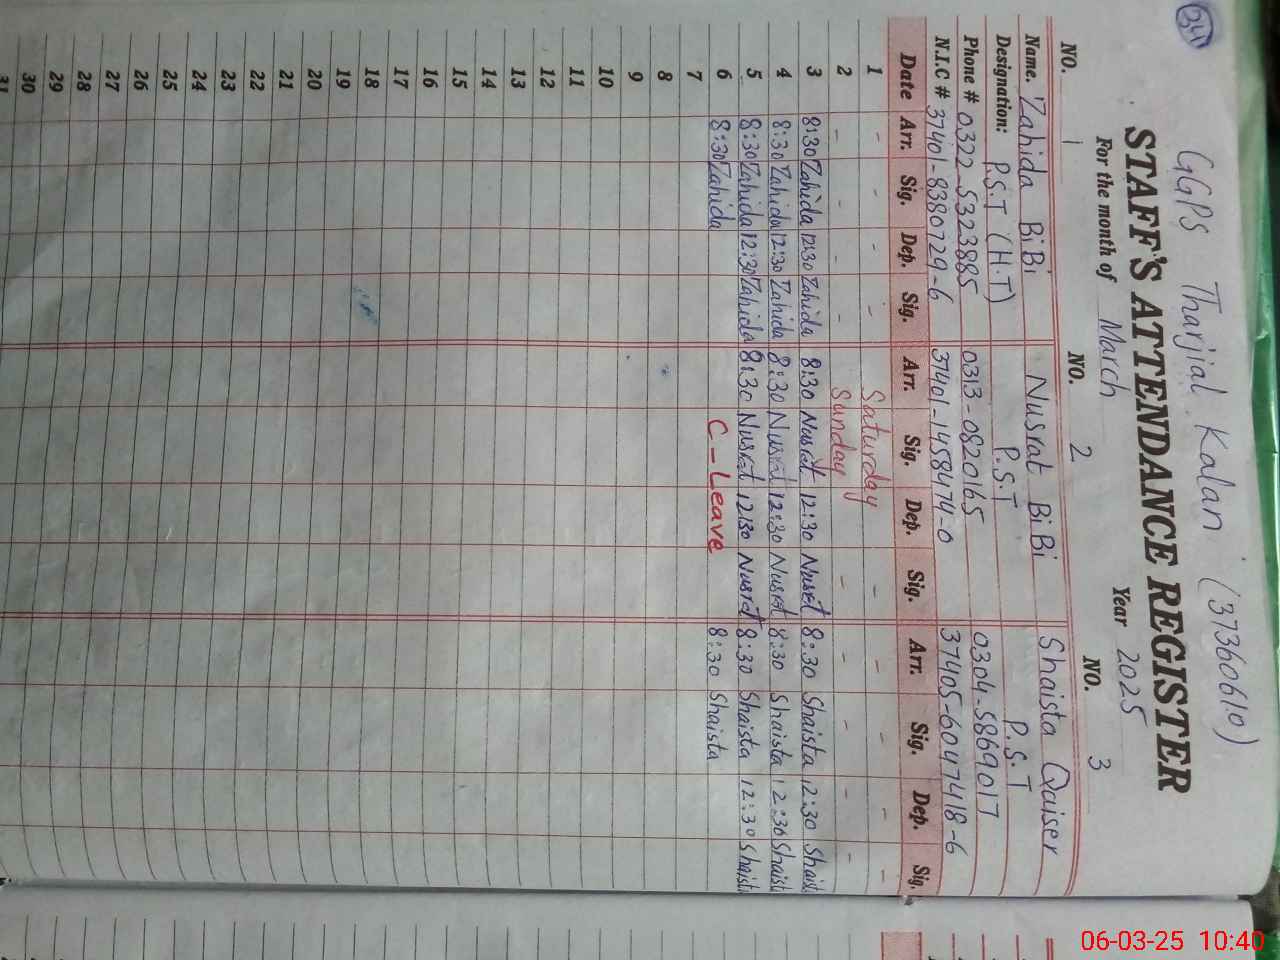 341
GGPS Tharjial Kalan (37360610)
STAFF'S ATTENDANCE REGISTER
For the month of March Year 2025
NO. 1 NO. 2 NO. 3
Name. Zahida BiBi Nusrat BiBi Shaista Qaiser
Designation: P.S.T (H.T) P.S.T P.S.T
Phone # 0322-5323885 0313-0820165 0304-5869017
N.I.C # 37401-8380729-6 37401-1458474-0 37405-6047418-6
Date Arr. Sig. Dep. Sig. Arr. Sig. Dep. Sig. Arr. Sig. Dep. Sig.
1 - - - - Saturday - - - - -
2 - - - - Sunday - - - - -
3 8:30 Zahida 12:30 Zahida 8:30 Nusrat 12:30 Nusrat 8:30 Shaista 12:30 Shaist
4 8:30 Zahida 12:30 Zahida 8:30 Nusrat 12:30 Nusrat 8:30 Shaista 12:30 Shaist
5 8:30 Zahida 12:30 Zahida 8:30 Nusrat 12:30 Nusrat 8:30 Shaista 12:30 Shaist
6 8:30 Zahida C-Leave 8:30 Shaista
7
8
9
10
11
12
13
14
15
16
17
18
19
20
21
22
23
24
25
26
27
28
29
30
31
06-03-25 10:40